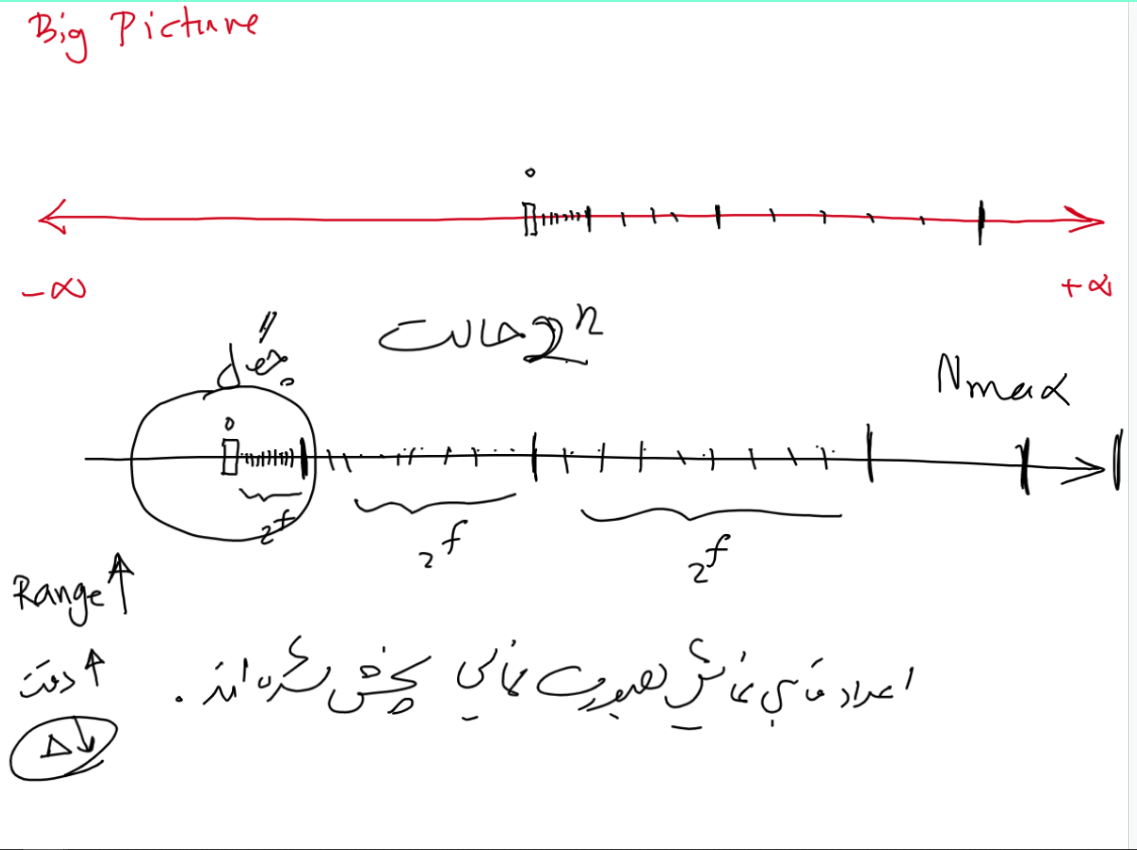 Big Picture
0
-∞ +∞
2ⁿ حالت
Nmax
0
2^f 2^f 2^f
Range ↑
دقت ↑
اعداد قابل نمایش بصورت نمایی پخش شده اند .
Δ↓